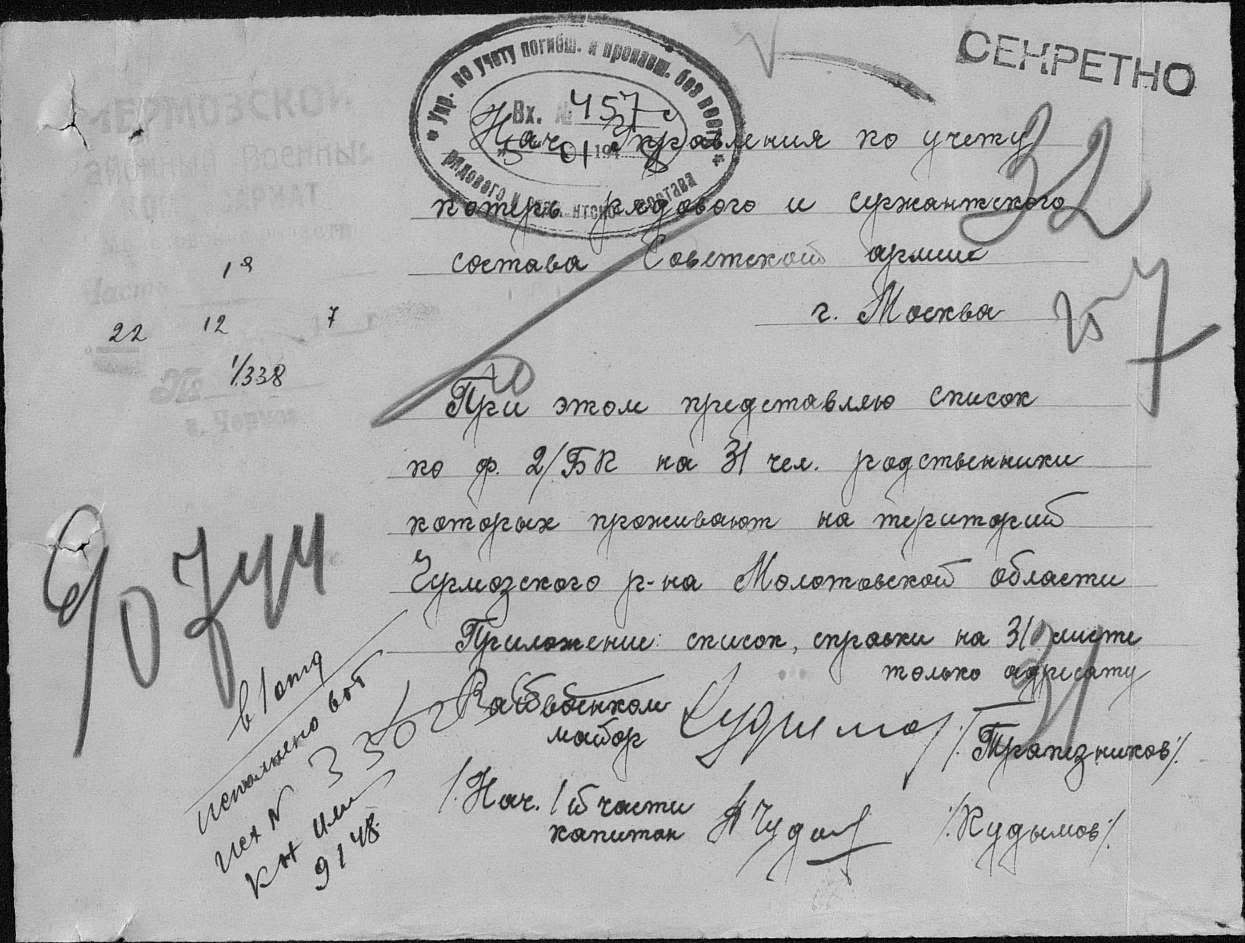 СЕКРЕТНО
Упр. по учету погибш. и пропавш. без вести
Вх. № 457с
5 01 194
рядового и состава
ЧЕРМОЗСКОЙ
РАЙОННЫЙ ВОЕННЫЙ
КОМИССАРИАТ
Молотовской области
Часть 1я
22 12 7
№ 1/338
г. Чермоз
Нач. Управления по учету
потерь рядового и сержантского
состава Советской армии
г. Москва
32
25
7
10
При этом представляю список
по ф. 2/БК на 31 чел. родственники
которых проживают на територий
Чермозского р-на Молотовской области
Приложение: список, справки на 31 листе
только адресату
31
Райвоенком
майор /Трапезников/.
/.Нач. 1й части
капитан /.Кудымов/.
в 1 отд
исполнено
исх N
9 1 48.